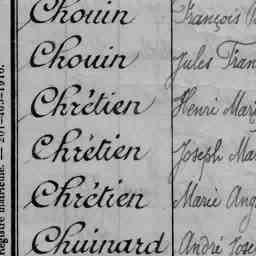 Chouin François
Chouin Jules Fran
Chrétien Henri Mar
Chrétien Joseph Ma
Chrétien Marie Ang
Chuinard André Jose